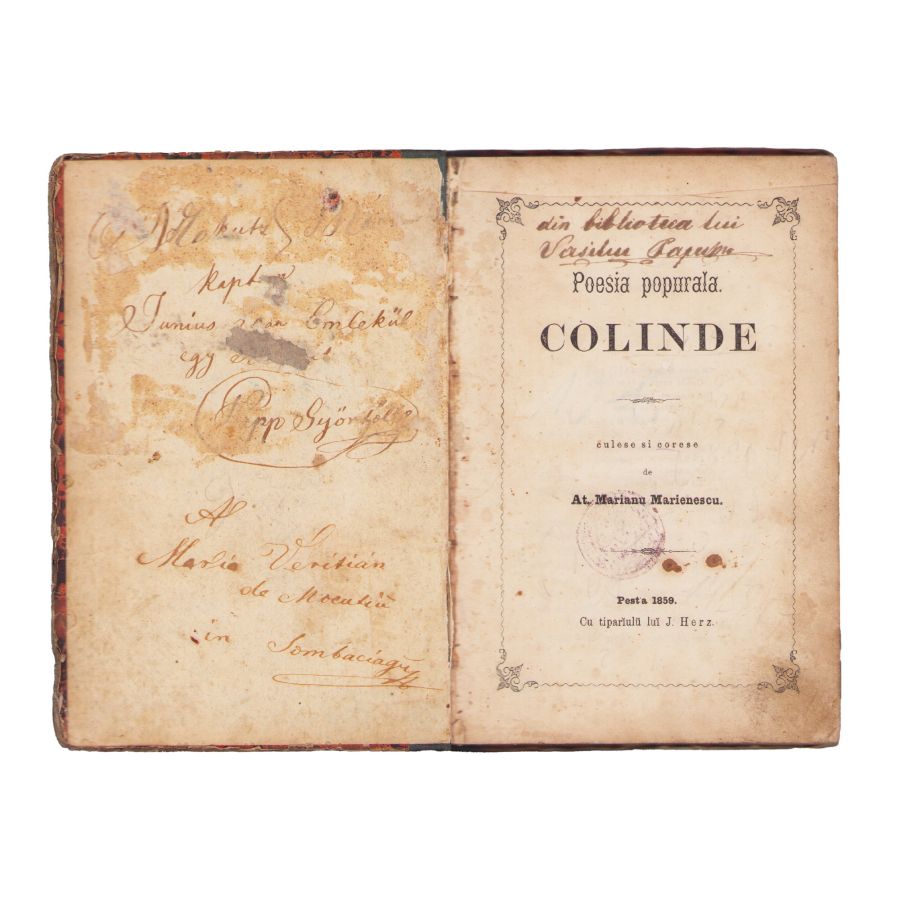 kaptam
Junius Emlekül
egy
Papp
Al
Maria Veritián
de Mocutiu
in Sombaciagu
din biblioteca lui
Vasiliu
Poesia popurala.
COLINDE
culese si corese
de
At. Marianu Marienescu.
Pest'a 1859.
Cu tipariulŭ luĭ J. Herz.